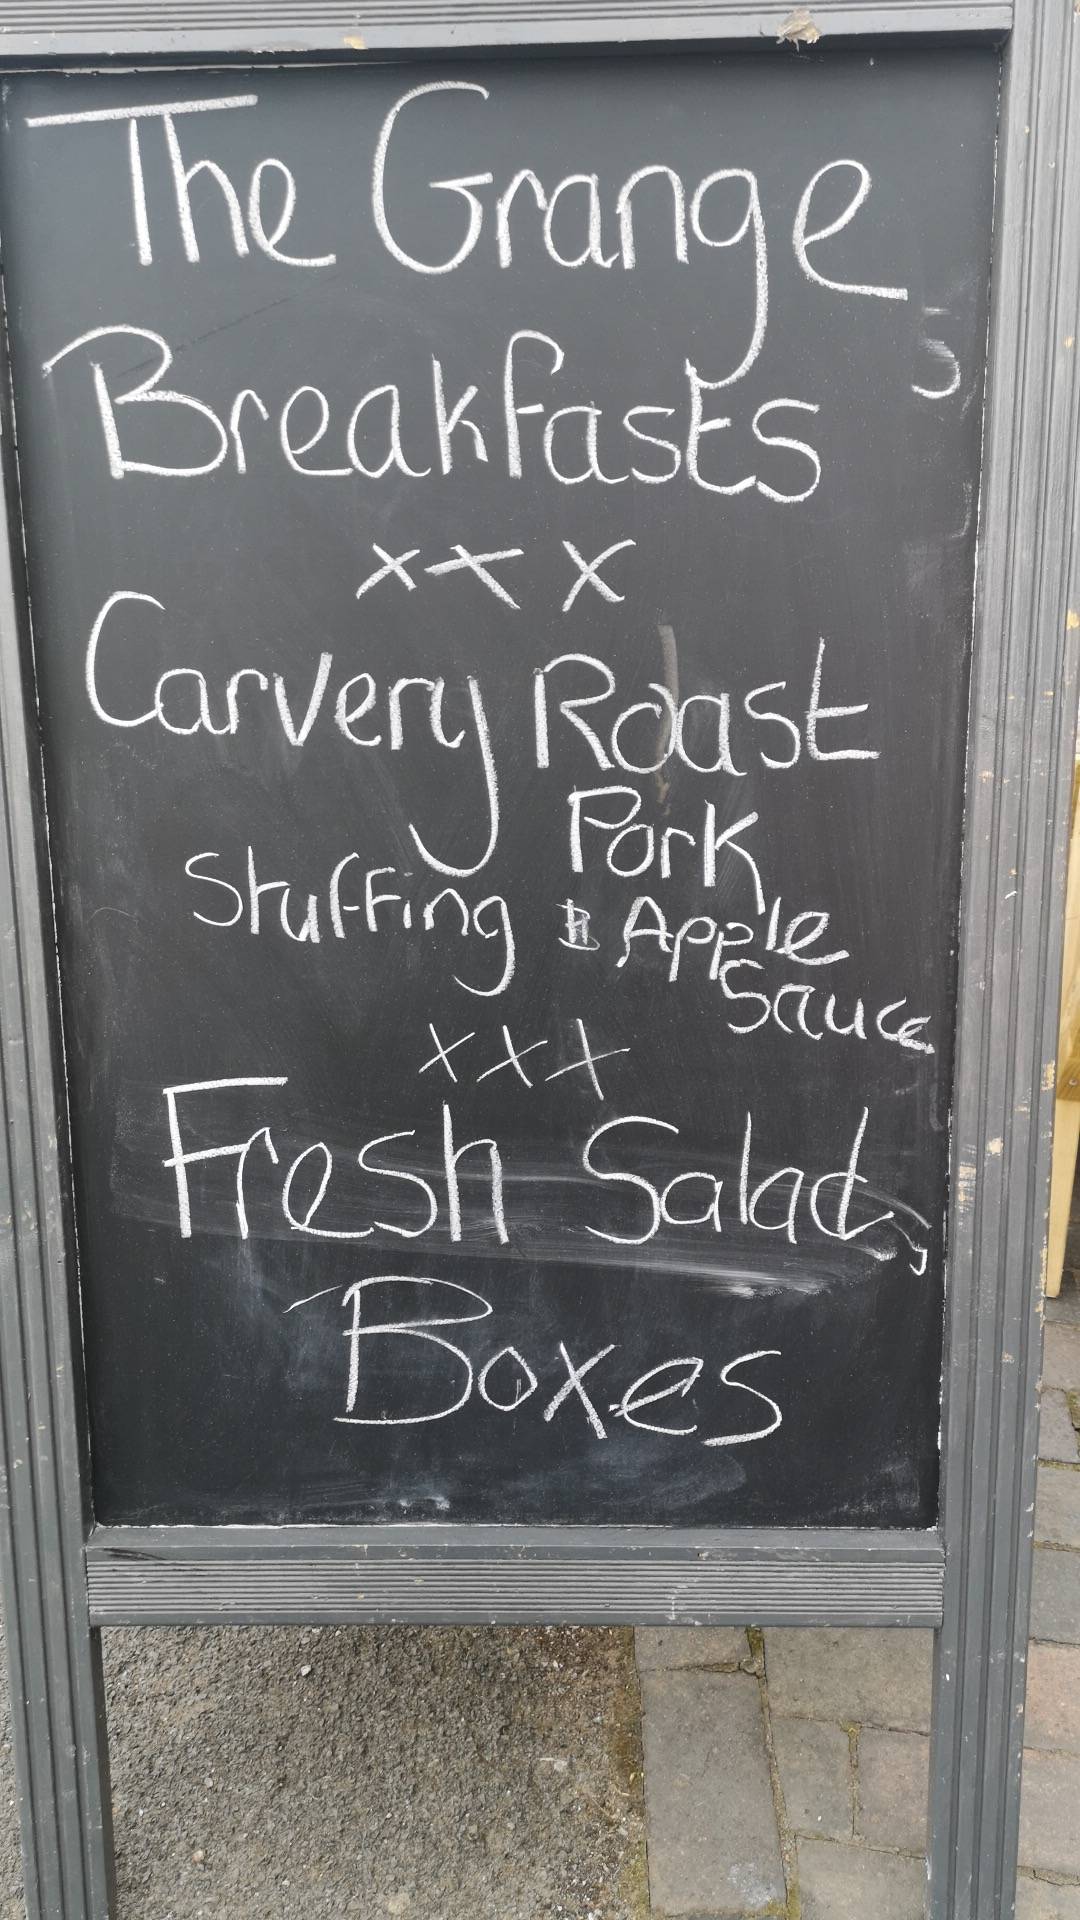 The Grange
Breakfasts
x x x
Carvery Roast
Pork
Stuffing & Apple
Sauce
x x x
Fresh Salad
Boxes